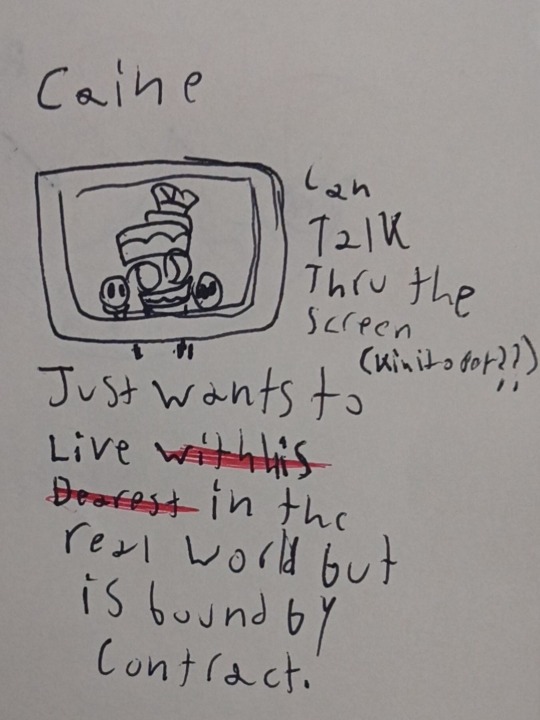 Caine
Can
Talk
Thru the
Screen
Just wants to
Live with his
Dearest in the
real world but
is bound by
contract.